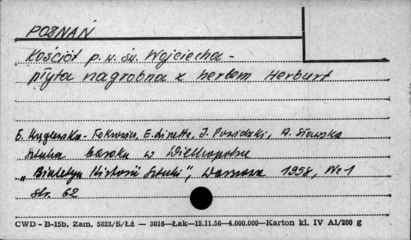 POZNAŃ
Kościół p. w. św. Wojciecha -
płyta nagrobna z herbem Herburt
E. Linette, A. Sławska
sztuka baroku w Wielkopolsce
„Biuletyn Historii Sztuki", Warszawa 1958, Nr 1
str. 62
CWD - B-15b, Zam. 5823/S/Łź — 3016—Łak—15.11.56—4.000.000—Karton kl. IV A1/200 g